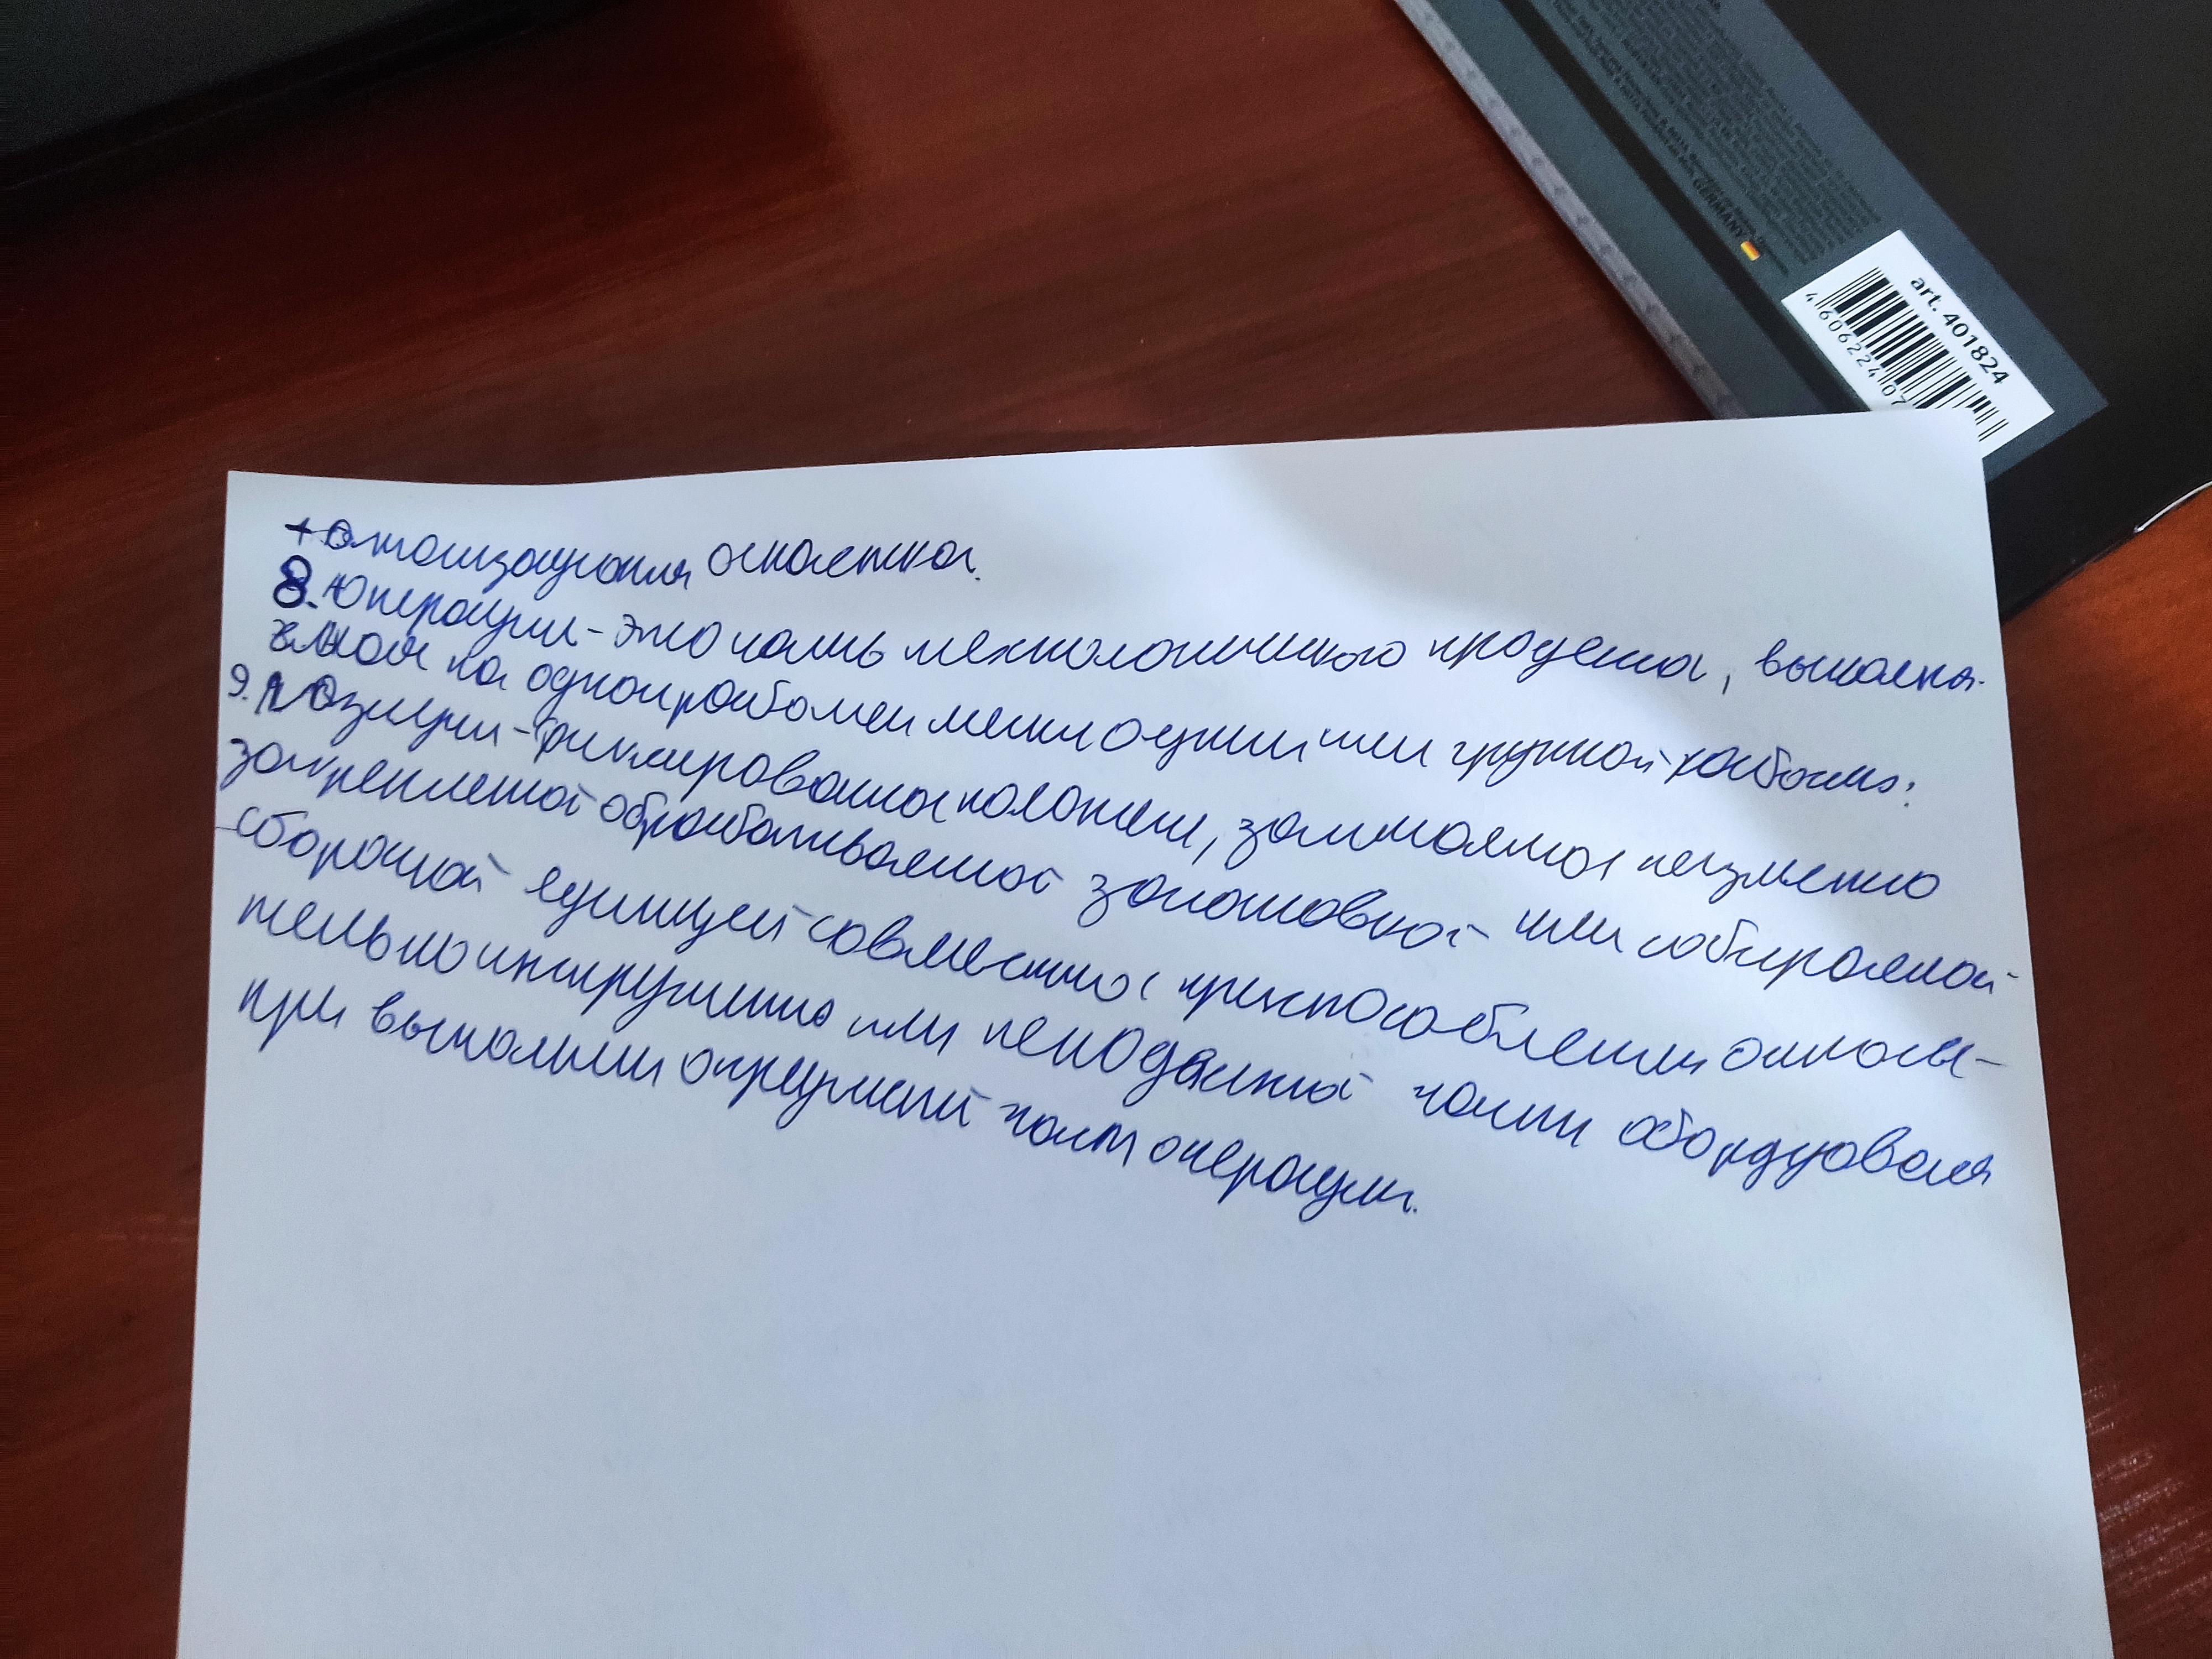 art. 401824
4 606224 07
GERMANY
оснастка.
8. Операции - это часть технологического процесса, выполня-
на одном рабочем месте одним или группой рабочих:
9. Позиции - фиксирована положени, занимаемое неизменно
закрепленной обрабатываемой заготовкой или собираемой
сборочной единицей совместно с приспособлением относи-
тельно инструмента или неподвиной части оборудованя
при выполнии определеной части операции.